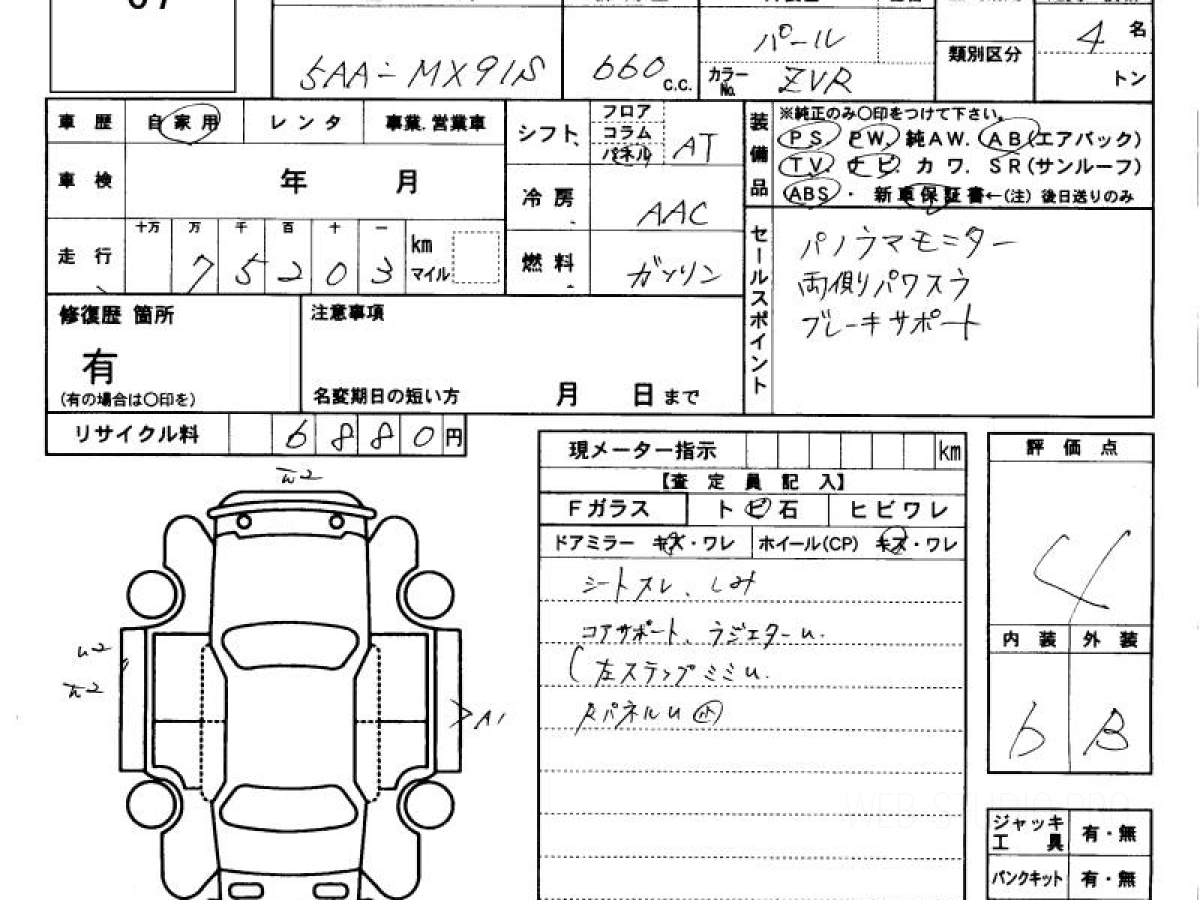 5AA-MX91S
660 c.c.
パール
カラーNo. ZVR
類別区分
4 名
トン
車歴 自家用 レンタ 事業.営業車
車検 年 月
走行 十万 万 千 百 十 一
7 5 2 0 3 km マイル
シフト フロア コラム パネル AT
冷房 AAC
燃料 ガソリン
装備品
※純正のみ〇印をつけて下さい。
PS PW. 純AW. AB(エアバック)
TV. ナビ. カワ. SR(サンルーフ)
ABS・新車保証書←(注)後日送りのみ
セールスポイント
パノラマモニター
両側パワスラ
ブレーキサポート
修復歴 箇所
有
(有の場合は〇印を)
注意事項
名変期日の短い方 月 日まで
リサイクル料 6 8 8 0 円
現メーター指示 km
【査定員記入】
Fガラス トビ石 ヒビワレ
ドアミラー キズ・ワレ ホイール(CP) キズ・ワレ
シートスレ、しみ
コアサポート、ラジエターu.
(左ステップミミu.
Rパネルu 小
評価点
4
内装 外装
b B
ジャッキ工具 有・無
パンクキット 有・無
A1
WEB STUDIO PRO